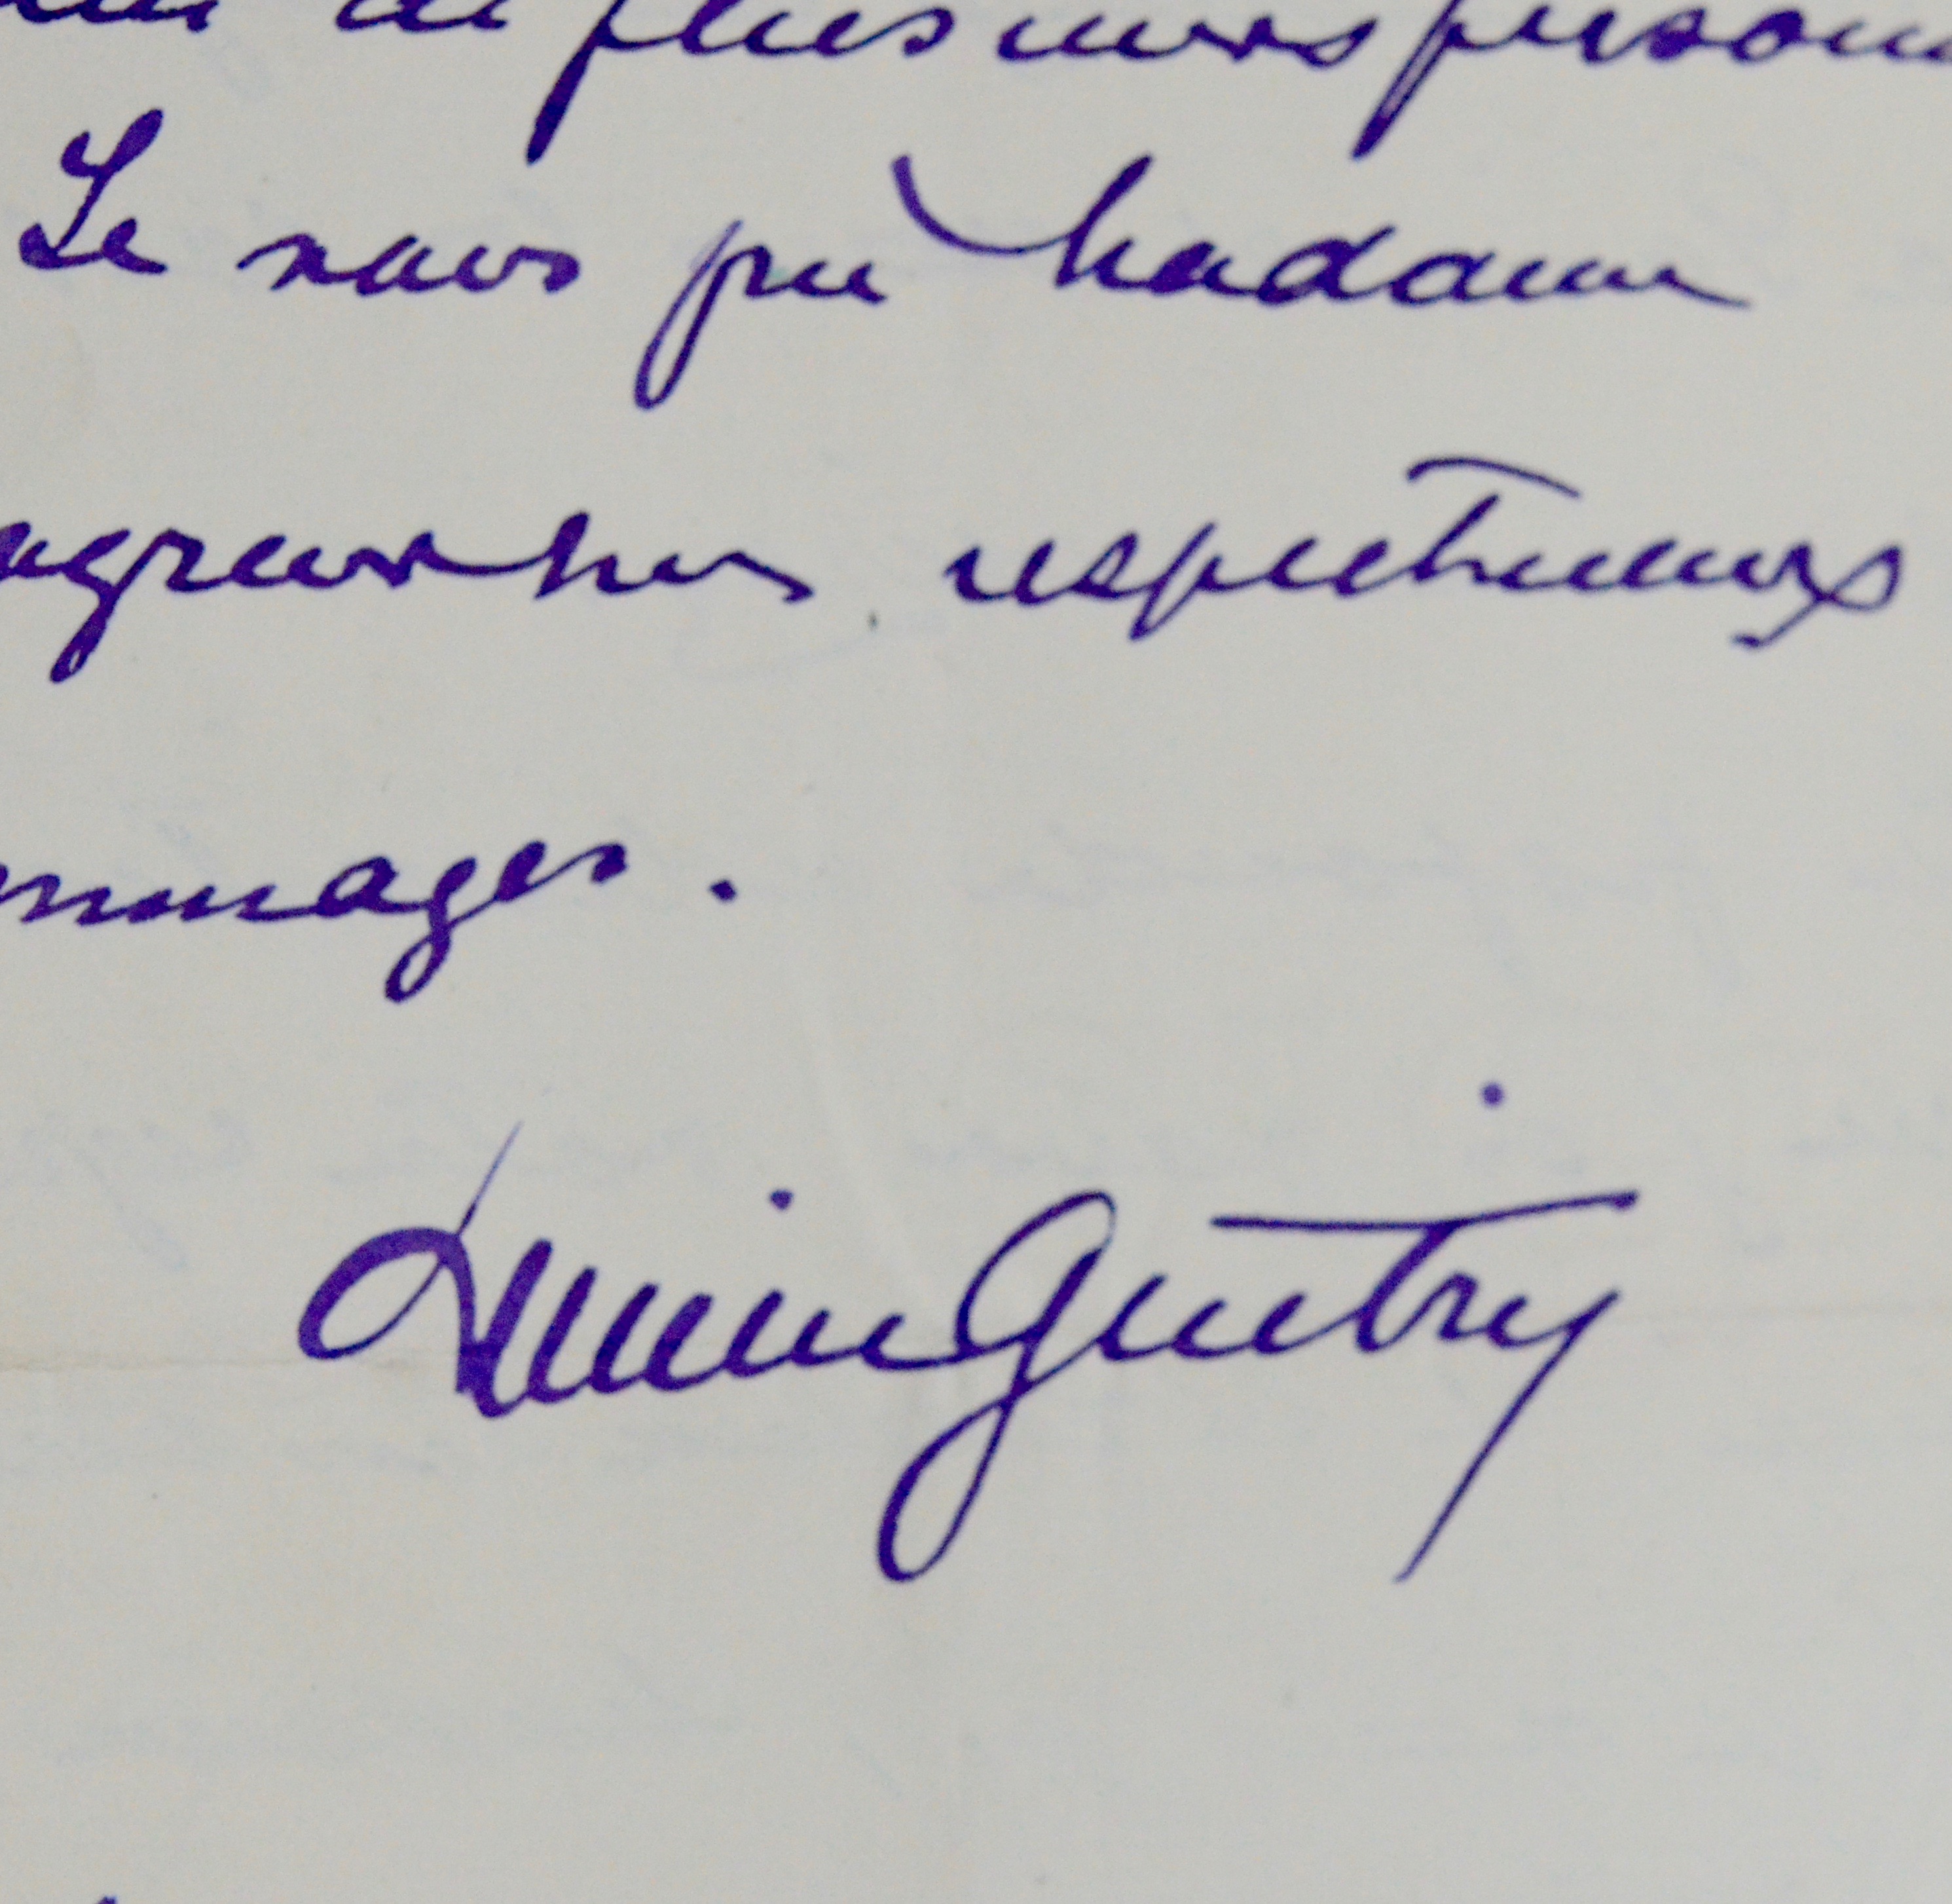 de plusieurs person
Je vous prie Madame
agréer mes respectueux
ommages.
Lucien Guitry